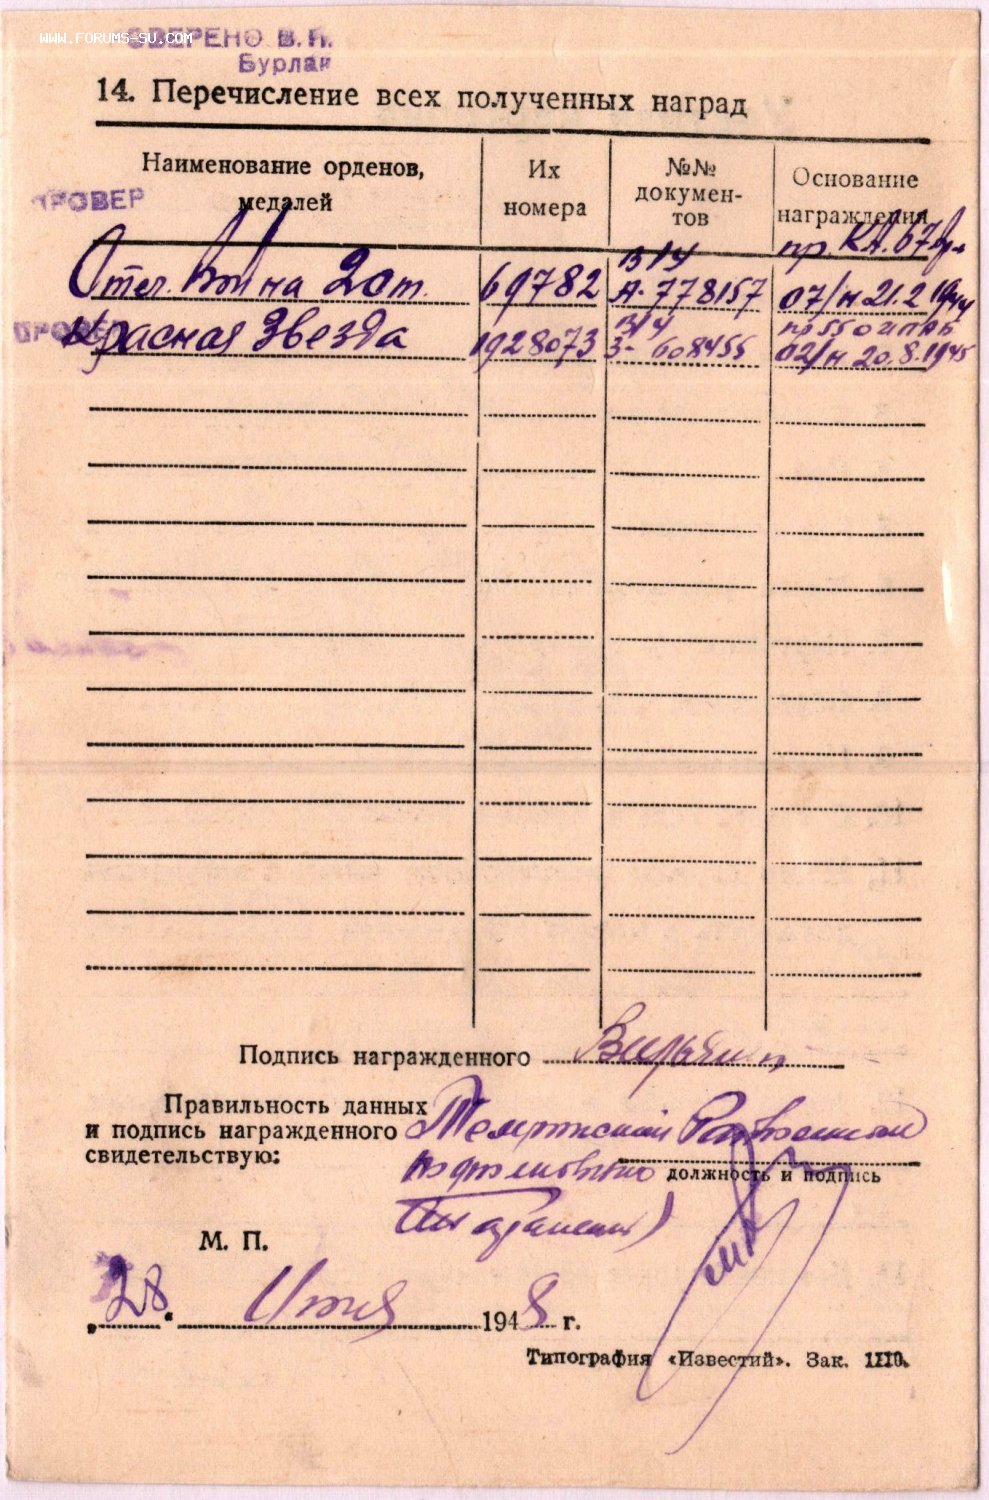 WWW.FORUMS-SU.COM
СВЕРЕНО В. П.
Бурлак
14. Перечисление всех полученных наград
Наименование орденов, медалей
Их номера
№№ документов
Основание награждения
ПРОВЕР
Отеч. Война 2 ст.
69782
В/У
А-778157
пр. КА. 67
07/н 21.2 1944
ПРОВЕР
Красная Звезда
1928073
В/У
З- 608455
02/н 20.8.1945
Подпись награжденного
Правильность данных
и подпись награжденного
свидетельствую:
должность и подпись
М. П.
28. Июня 1948 г.
Типография «Известий». Зак. 1110.